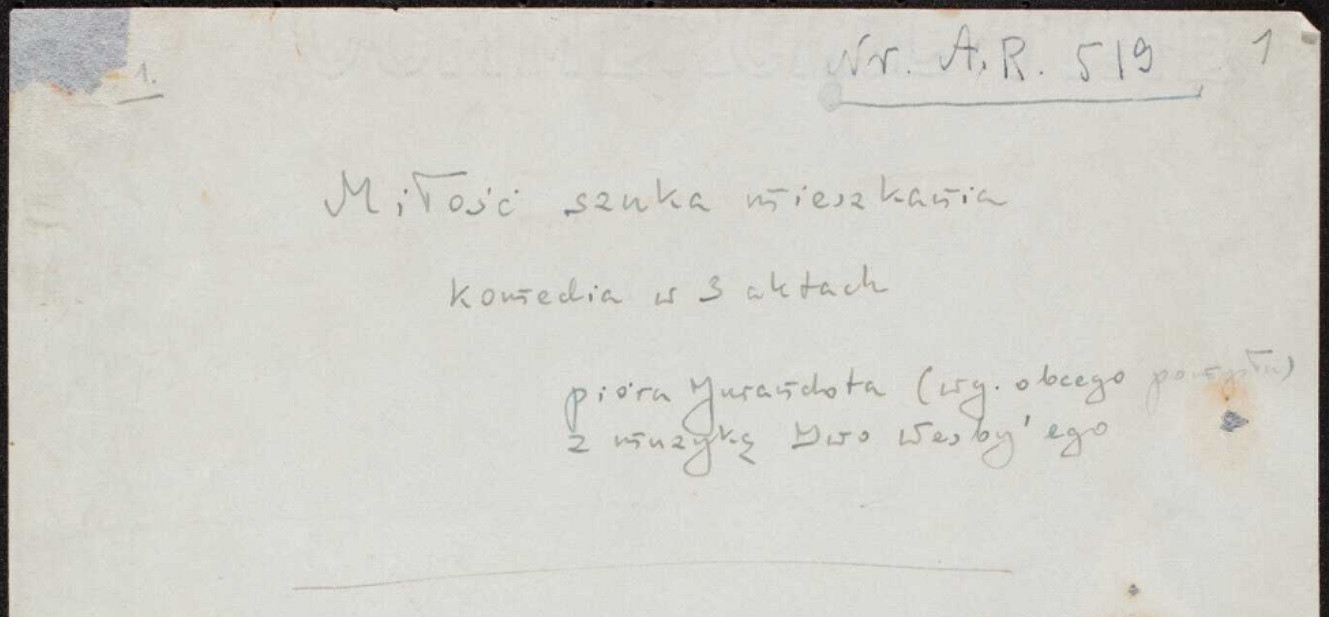 1.
Nr. A.R. 519
1
Miłość szuka mieszkania
komedia w 3 aktach
pióra Jurandota (wg. obcego pomysłu)
z muzyką Iwo Wesby'ego